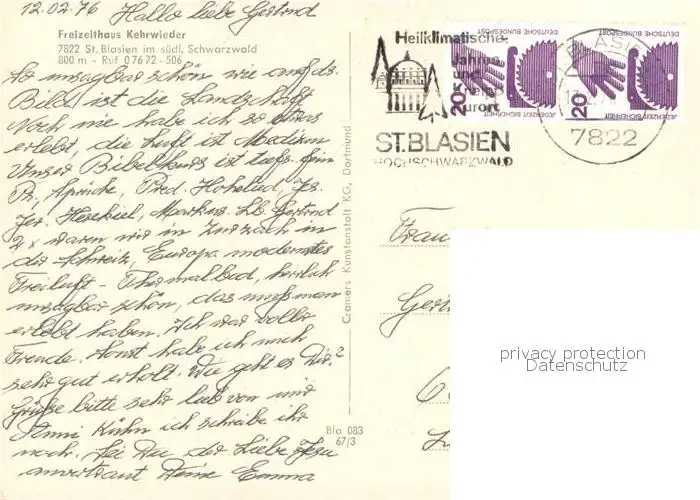 12.02.76 Hallo liebe Gertrud
Freizeithaus Kehrwieder
7822 St. Blasien im südl. Schwarzwald
800 m - Ruf 0 76 72 - 506
So unsagbar schön wie auf ds.
Bild ist die Landschaft
Noch nie habe ich so etwas
erlebt, die Luft ist Medizin
Unser Bibelkurs ist tiefs. fein
Ps, Sprüche, Pred. Hohelied, Jes.
Jer. Hesekiel, Markus. Lb Gertrud
2 x waren wir in Zurzach in
der Schweiz, Europa modernstes
Freiluft - Thermalbad, herrlich
unsagbar schön, das muss man
erlebt haben. Ich war voller
Freude. Sonst habe ich mich
sehr gut erholt. Wie geht es Dir?
Grüsse bitte sehr lieb von mir
Anni Kühn ich schreibe ihr
noch. Sei Du der Liebe Jesu
anvertraut Deine Emma
Cramers Kunstanstalt KG, Dortmund
Bla 083
67/3
Heilklimatischer
Jahres
und
Kneipp
kurort
ST. BLASIEN
HOCHSCHWARZWALD
DEUTSCHE BUNDESPOST
JEDERZEIT SICHERHEIT
20
DEUTSCHE BUNDESPOST
JEDERZEIT SICHERHEIT
20
7822
Frau
privacy protection
Datenschutz